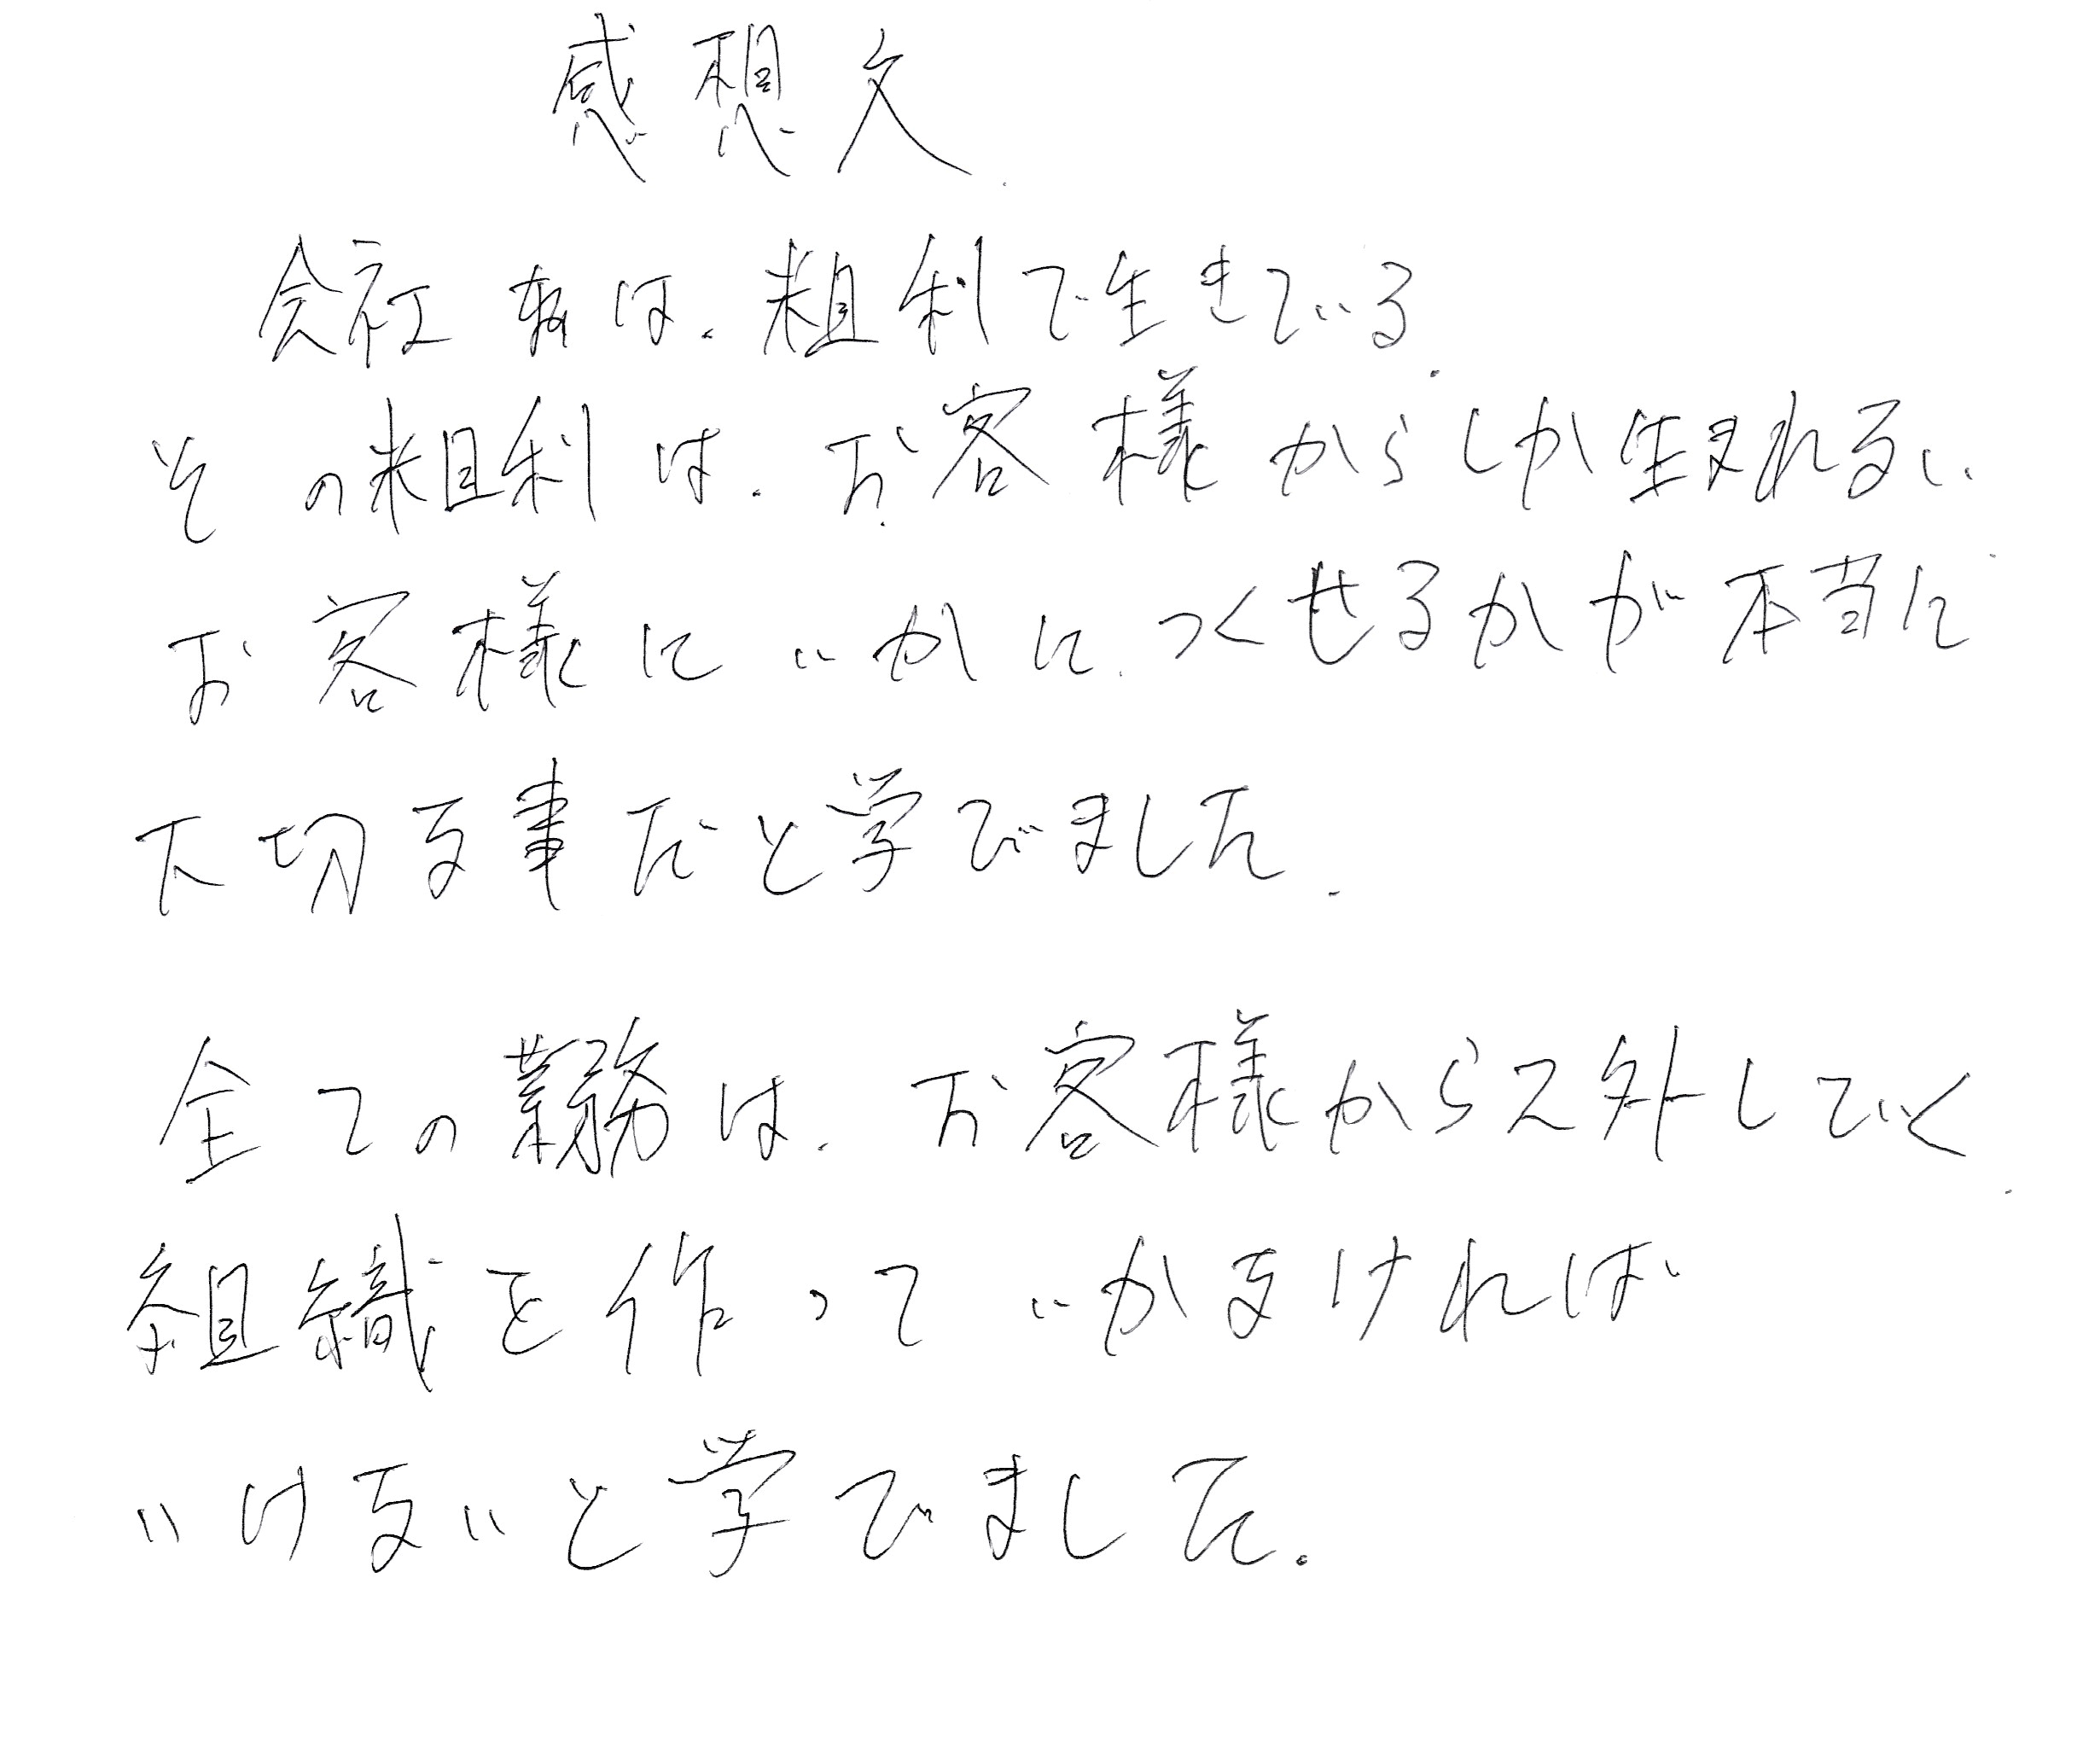 感想文
会社は、粗利で生きている。
その粗利は、お客様からしか生まれない。
お客様にいかに、つくせるかが本当に
大切な事だと学びました。
全ての業務は、お客様からしていく
組織を作っていかなければ
いけないと学びました。